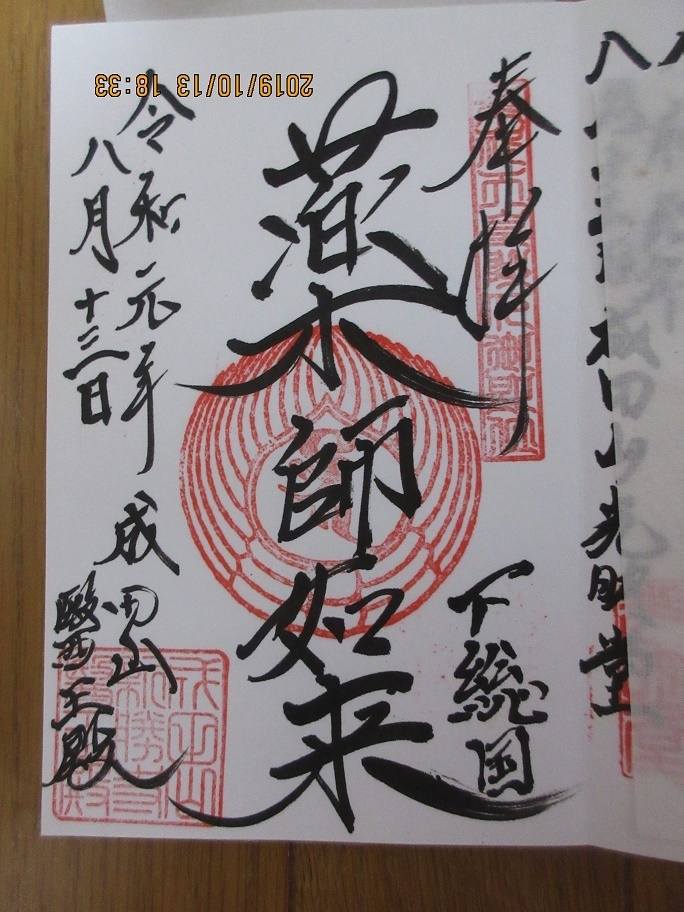 奉拝
下総国
薬師如来
令和元年
八月十三日
成田山
醫王殿
成田山光明堂
2019/10/13 18:33